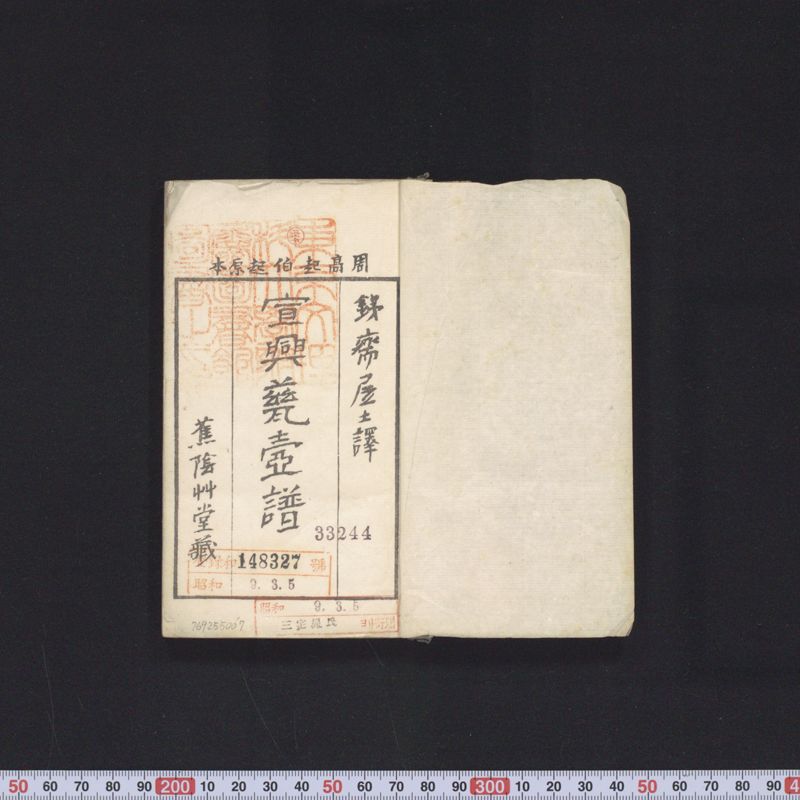 周高起伯起原本
斎居士譯
宣興甆壺譜
蕉陰艸堂藏
33244
148327 號
昭和 9.3.5
昭和 9.3.5
50 60 70 80 90 200 10 20 30 40 50 60 70 80 90 300 10 20 30 40 50 60 70 80 90